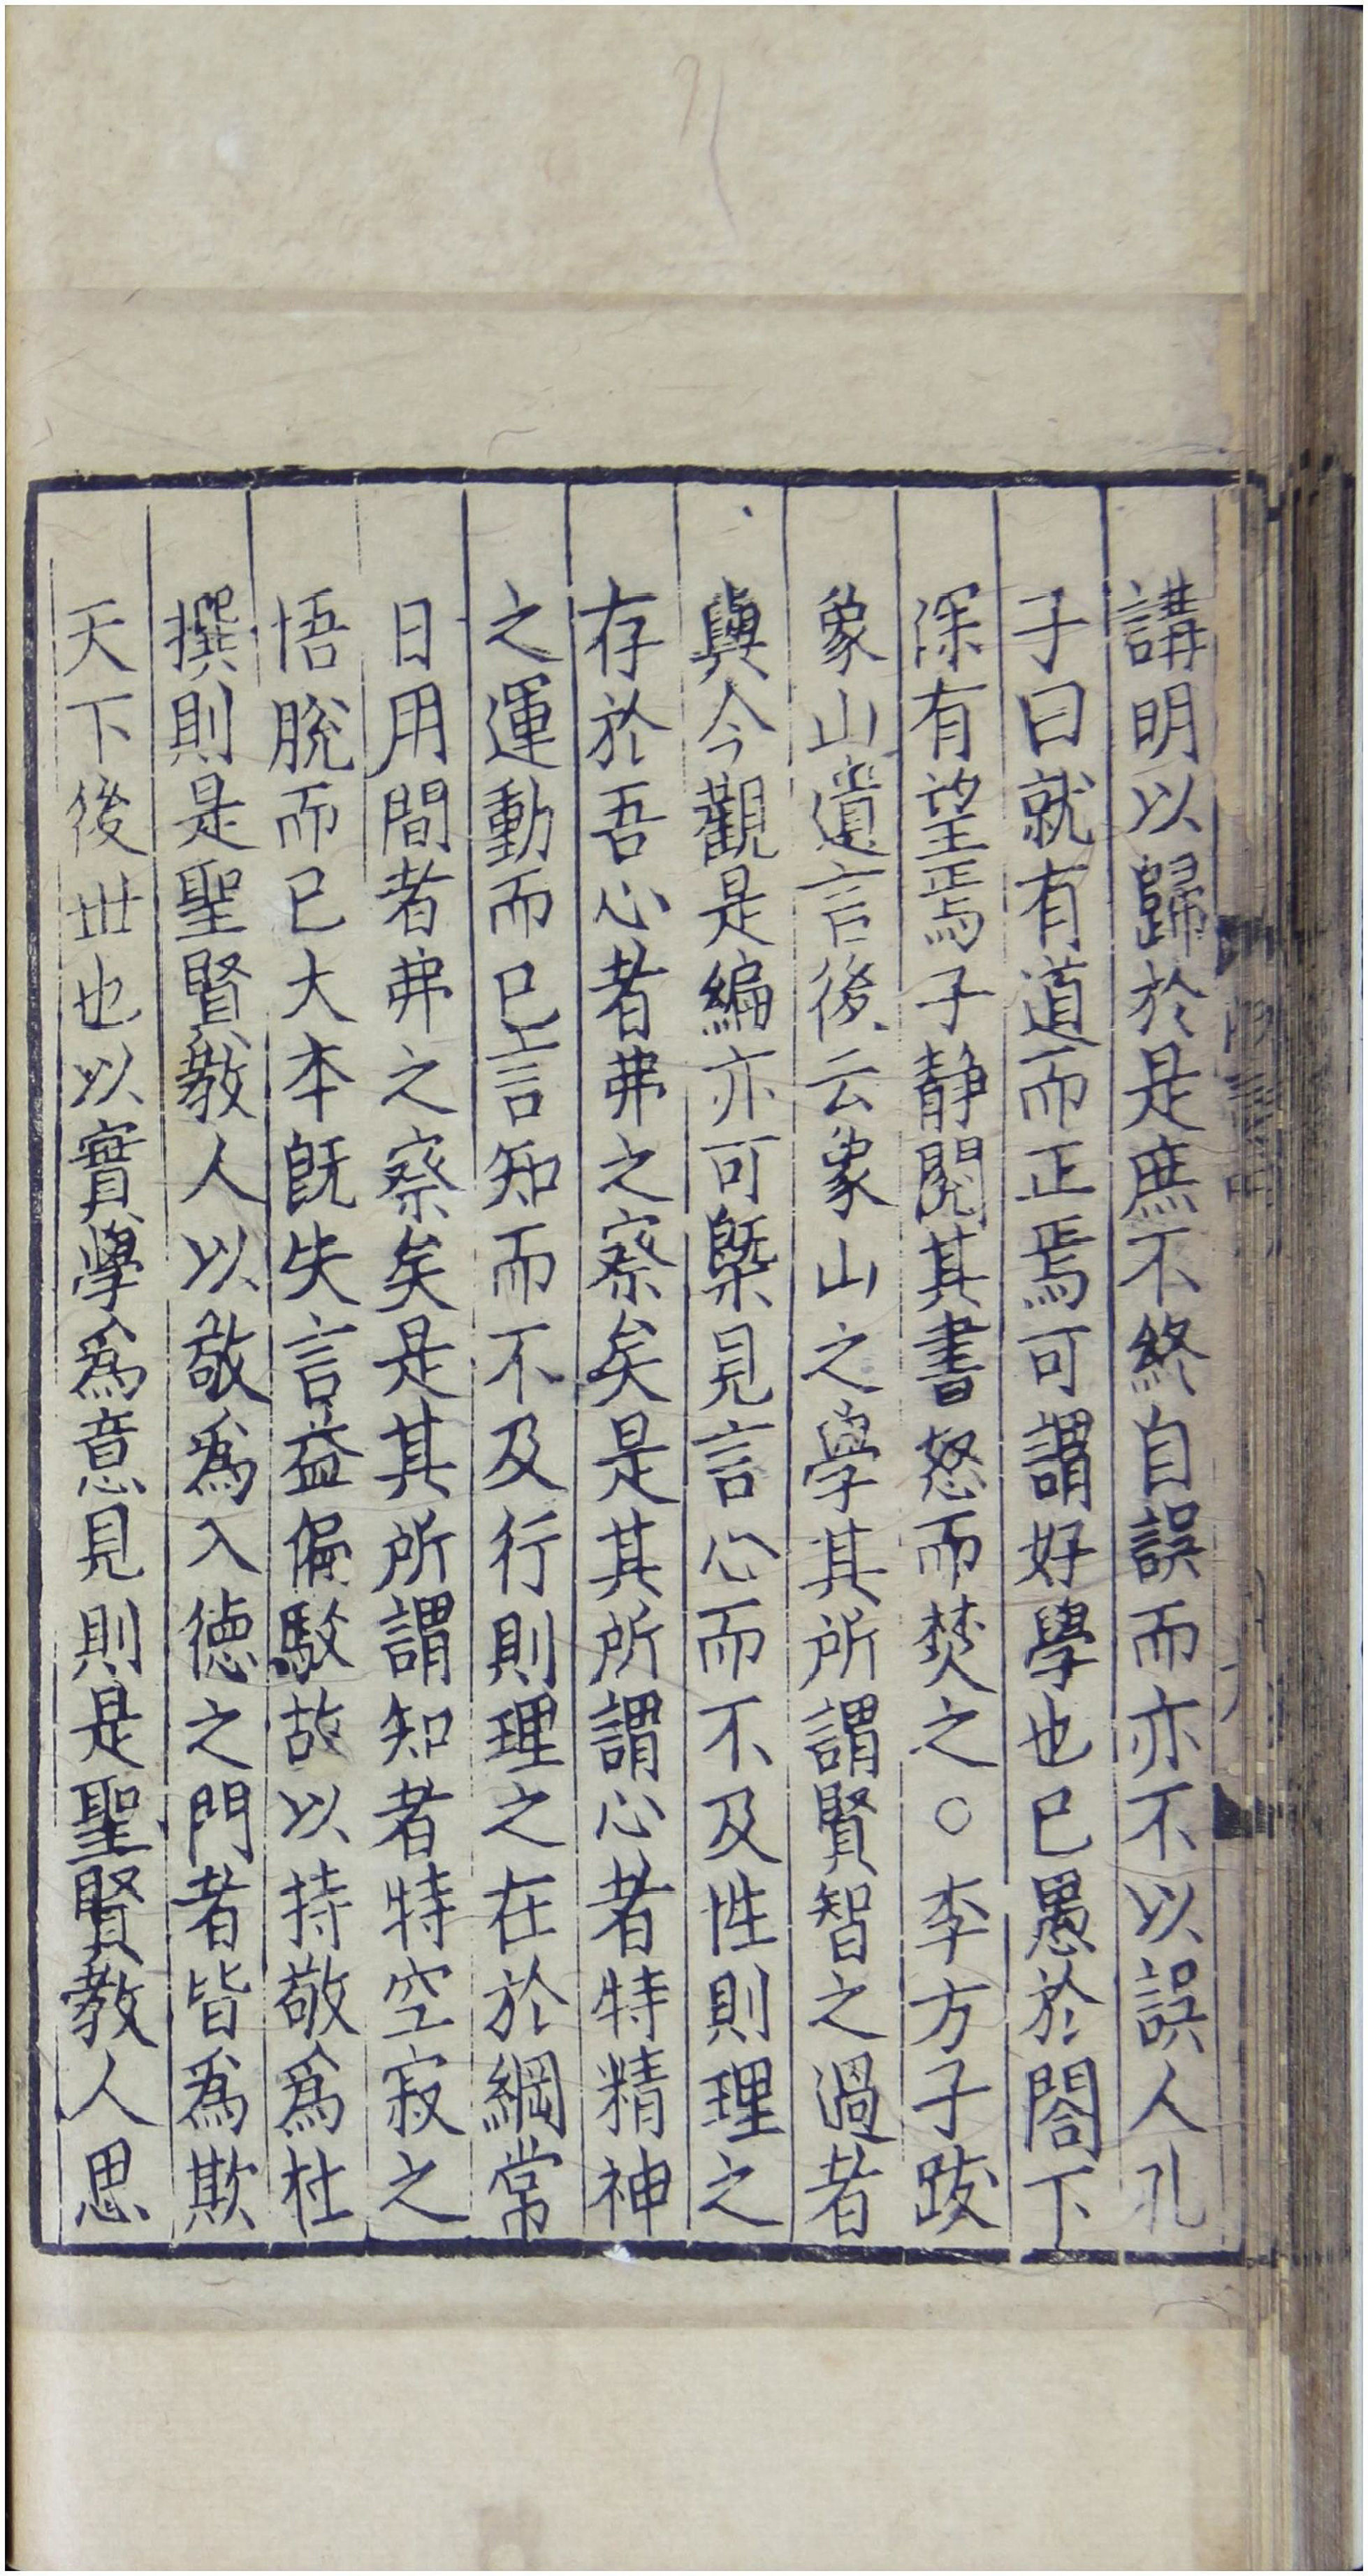 講明以歸於是庶不終自誤而亦不以誤人孔
子曰就有道而正焉可謂好學也已愚於閤下
深有望焉子靜閱其書怒而焚之○李方子跋
象山遺言後云象山之學其所謂賢智之過者
與今觀是編亦可槩見言心而不及性則理之
存於吾心者弗之察矣是其所謂心者特精神
之運動而已言知而不及行則理之在於綱常
日用間者弗之察矣是其所謂知者特空寂之
悟脫而已大本既失言益偏駁故以持敬為杜
撰則是聖賢教人以敬為入德之門者皆為欺
天下後世也以實學為意見則是聖賢教人思